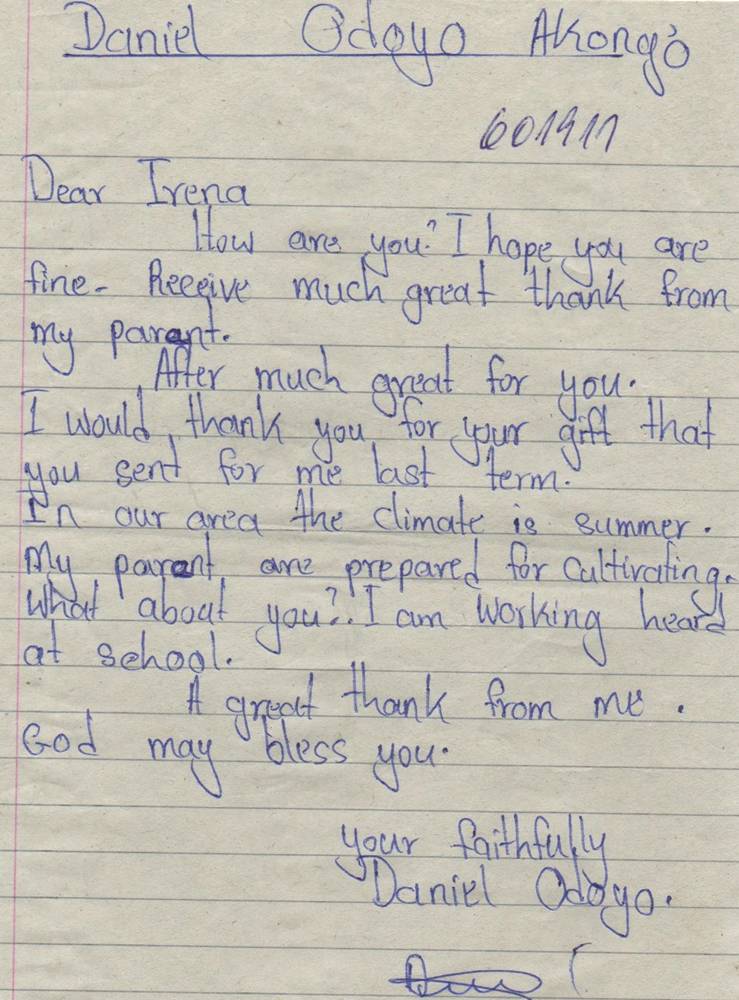 Daniel Odoyo Akong'o
601911
Dear Irena
How are you? I hope you are
fine- Receive much great thank from
my parant.
After much great for you.
I would thank you for your gift that
you sent for me last term.
In our area the climate is summer.
My parant are prepared for cultivating.
What about you?. I am working heard
at school.
A great thank from me.
God may bless you.
your faithfully
Daniel Odoyo.